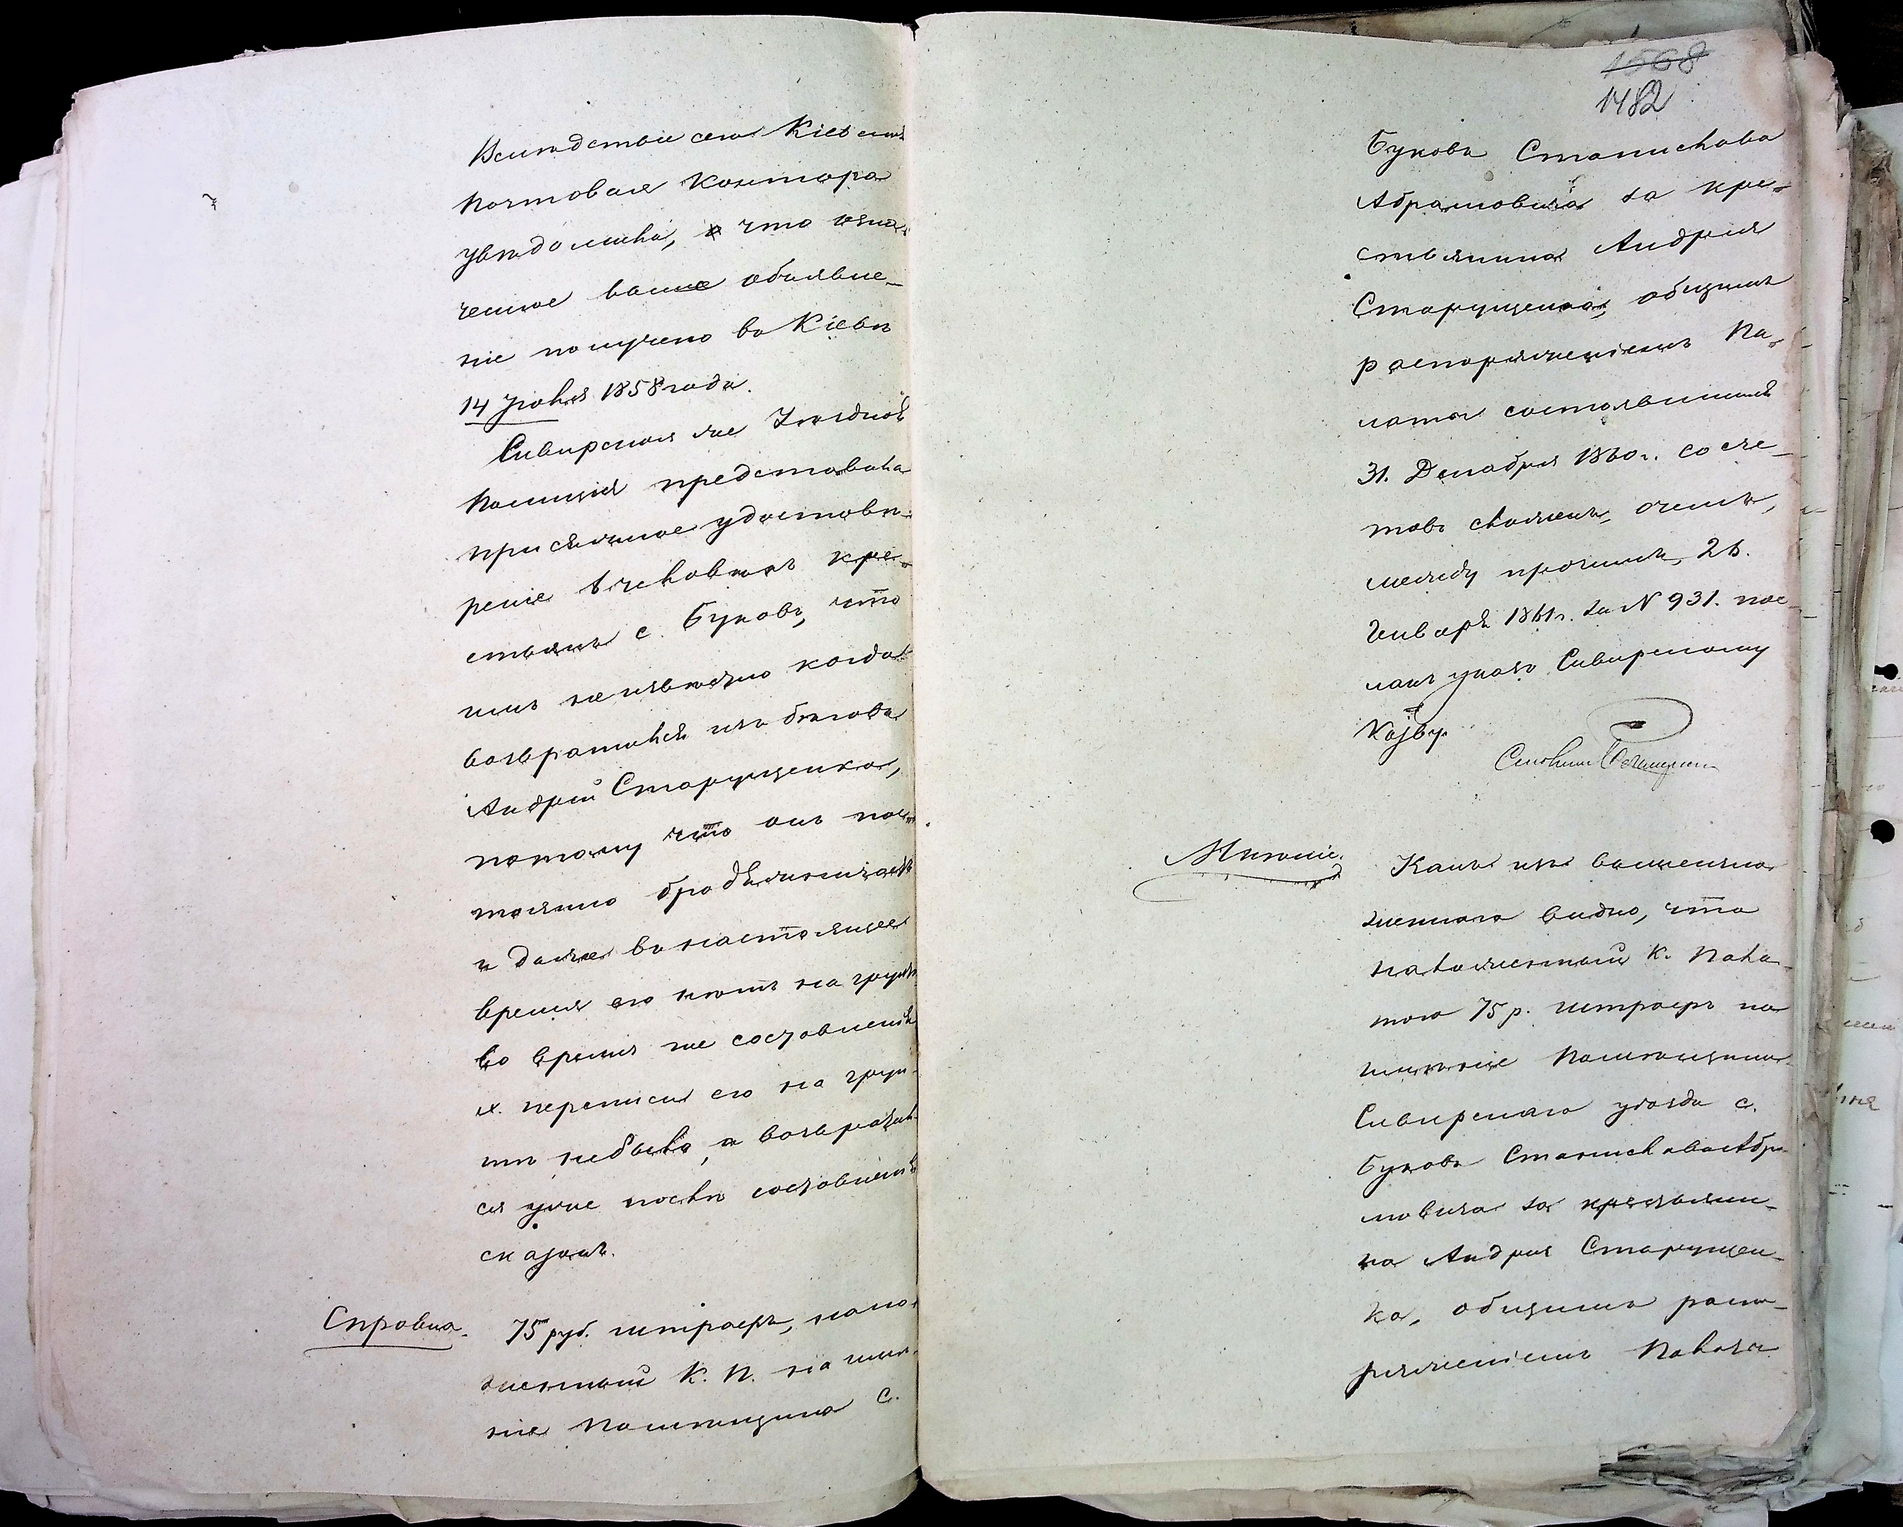 Вслѣдствіе сего Кіевская
Почтовая Контора
увѣдомила, что озна-
ченное выше объявле-
ніе получено въ Кіевѣ
14 Іюня 1858 года.
Сквирская же Уѣздная
Полиція представила
присяжное удостовѣ-
реніе 6 человѣкъ кре-
стьянъ с. Буковъ, что
имъ неизвѣстно когда
возвратился изъ бѣговъ
Андрей Старущенко,
потому что онъ пос-
тоянно бродяжничаетъ
и даже въ настоящее
время его нѣтъ на грунтѣ
во время же составленія
х. переписи его на грун-
тѣ небыло, а возвратил-
ся уже послѣ составленія
сказокъ.
Справка. 75 руб. штрафъ, нало-
женный К. П. на имѣ-
ніе Помѣщика с.
1568
1482
Буковъ Станислава
Абрамовича за кре-
стьянина Андрея
Старущенка, общимъ
распоряженіемъ Па-
латы состоявшимся
31. Декабря 1860 г. со сче-
товъ сложенъ, о чемъ,
между прочимъ, 26.
Января 1861 г. за N 931. пос-
ланъ указъ Сквирскому
Каз-ву.
Мнѣніе. Какъ изъ вышеизло-
женнаго видно, что
наложенный К. Пала-
тою 75 р. штрафъ на
имѣніе Помѣщика
Сквирскаго уѣзда с.
Буковъ Станислава Абра-
мовича за крестьяни-
на Андрея Старущен-
ка, общимъ распо-
ряженіемъ Палаты